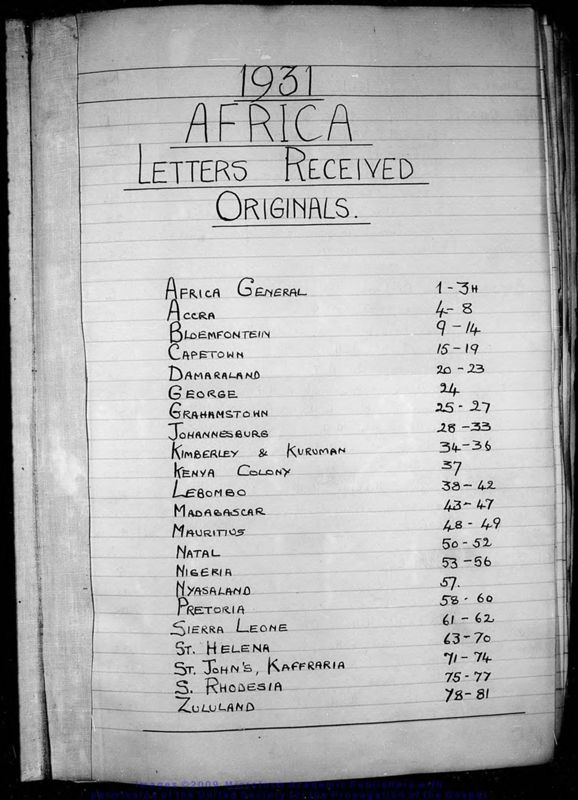 1931
AFRICA
LETTERS RECEIVED
ORIGINALS.
AFRICA GENERAL 1-3H
ACCRA 4-8
BLOEMFONTEIN 9-14
CAPETOWN 15-19
DAMARALAND 20-23
GEORGE 24
GRAHAMSTOWN 25-27
JOHANNESBURG 28-33
KIMBERLEY & KURUMAN 34-36
KENYA COLONY 37
LEBOMBO 38-42
MADAGASCAR 43-47
MAURITIUS 48-49
NATAL 50-52
NIGERIA 53-56
NYASALAND 57.
PRETORIA 58-60
SIERRA LEONE 61-62
ST. HELENA 63-70
ST. JOHN'S, KAFFRARIA 71-74
S. RHODESIA 75-77
ZULULAND 78-81
Images ©2009 Microform Academic Publishers with
permission of the United Society for the Propagation of the Gospel